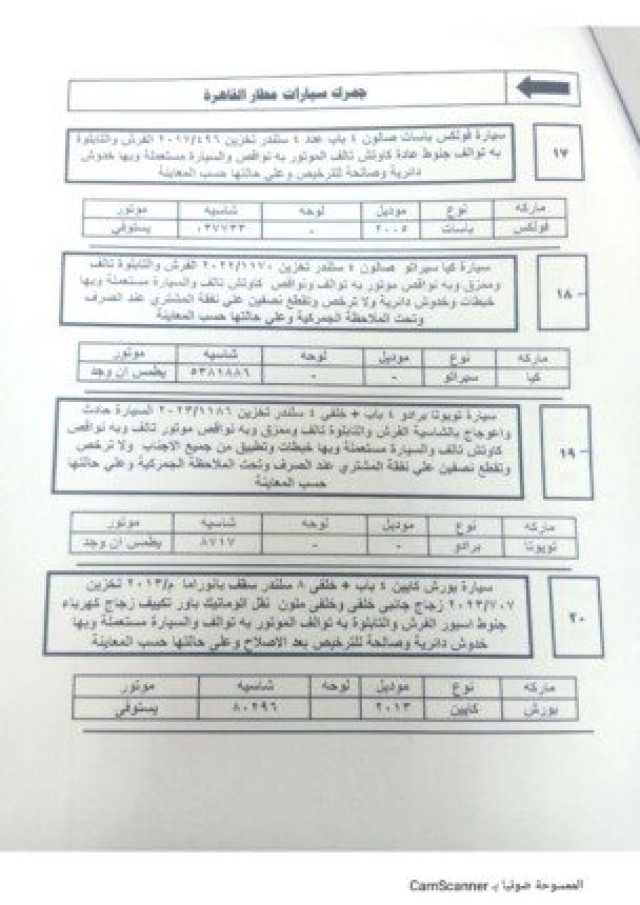 جمرك سيارات مطار القاهرة
١٧
سيارة فولكس باسات صالون ٤ باب عدد ٤ سلندر تخزين ٢٠١٧/٤٩٦ الفرش والتابلوة
به توالف جنوط عادة كاوتش تالف الموتور به نواقص والسيارة مستعملة وبها خدوش
دائرية وصالحة للترخيص وعلي حالتها حسب المعاينة
ماركه نوع موديل لوحه شاسيه موتور
فولكس باسات ٢٠٠٥ - ٠٣٧٧٣٣ يستوفي
١٨ -
سيارة كيا سيراتو صالون ٤ سلندر تخزين ٢٠٢٢/١١٧٠ الفرش والتابلوة تالف
وممزق وبه نواقص موتور به توالف ونواقص كاوتش تالف والسيارة مستعملة وبها
خبطات وخدوش دائرية ولا ترخص وتقطع نصفين علي نفقة المشتري عند الصرف
وتحت الملاحظة الجمركية وعلي حالتها حسب المعاينة
ماركه نوع موديل لوحه شاسيه موتور
كيا سيراتو - - ٥٣٨١٨٨٦ يطمس ان وجد
١٩ -
سيارة تويوتا برادو ٤ باب + خلفي ٤ سلندر تخزين ٢٠٢٣/١١٨٦ السيارة حادث
واعوجاج بالشاسية الفرش والتابلوة تالف وممزق وبه نواقص موتور تالف وبه نواقص
كاوتش تالف والسيارة مستعملة وبها خبطات وتطبيق من جميع الاجناب ولا ترخص
وتقطع نصفين علي نفقة المشتري عند الصرف وتحت الملاحظة الجمركية وعلي حالتها
حسب المعاينة
ماركه نوع موديل لوحه شاسيه موتور
تويوتا برادو - - ٨٧١٧ يطمس ان وجد
٢٠
سيارة بورش كايين ٤ باب + خلفي ٨ سلندر سقف بانوراما م/٢٠١٣ تخزين
٢٠٢٢/٧٠٧ زجاج جانبي خلفي وخلفي ملون نقل اتوماتيك باور تكييف زجاج كهرباء
جنوط اسبور الفرش والتابلوة به توالف الموتور به توالف والسيارة مستعملة وبها
خدوش دائرية وصالحة للترخيص بعد الاصلاح وعلي حالتها حسب المعاينة
ماركه نوع موديل لوحه شاسيه موتور
بورش كايين ٢٠١٣ ٨٠٢٩٦ يستوفي
الممسوحة ضوئيا بـ CamScanner